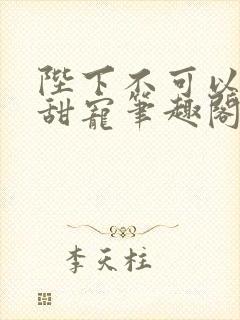 陛下不可以
甜寵筆趣閣
李天柱